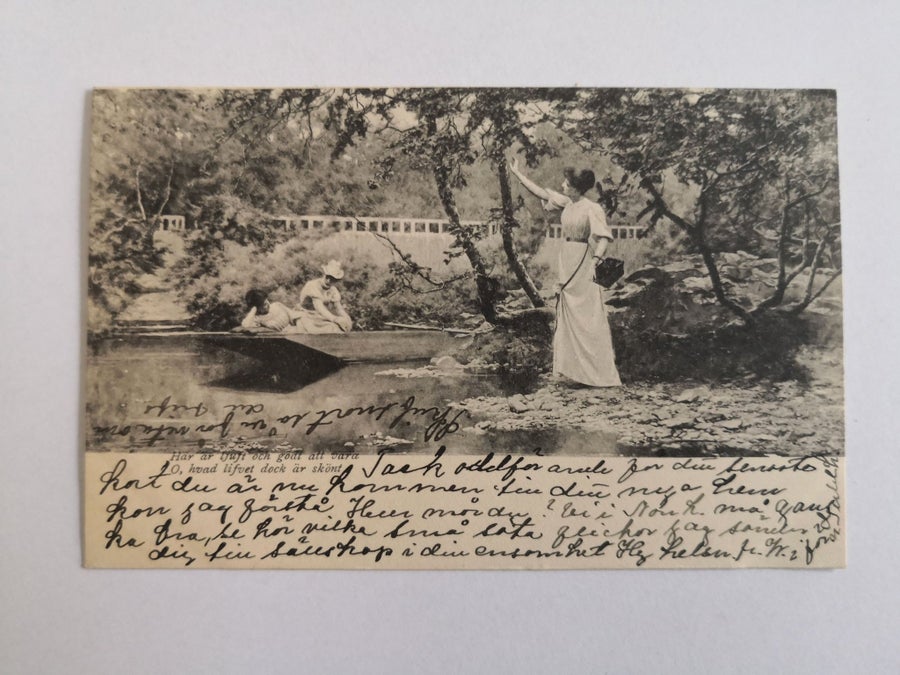 Här är ljuft och godt att vara
O, hvad lifvet dock är skönt.
Tack oldför ande för din senaste
kort du är nu kommen till din nya hem
kan jag förstå. Huru mår du? Vi i Norrk. må gans
ka bra, se hör vilka små söta flickor jag sänder
dig till sällskap i din ensamhet Hj helsn fr. W.
Skrif snart så vi får veta om